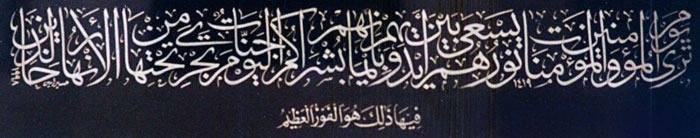 يوم ترى المؤمنين والمؤمنات يسعى نورهم بين أيديهم وبأيمانهم بشراكم اليوم جنات تجري من تحتها الأنهار خالدين
فيها ذلك هو الفوز العظيم